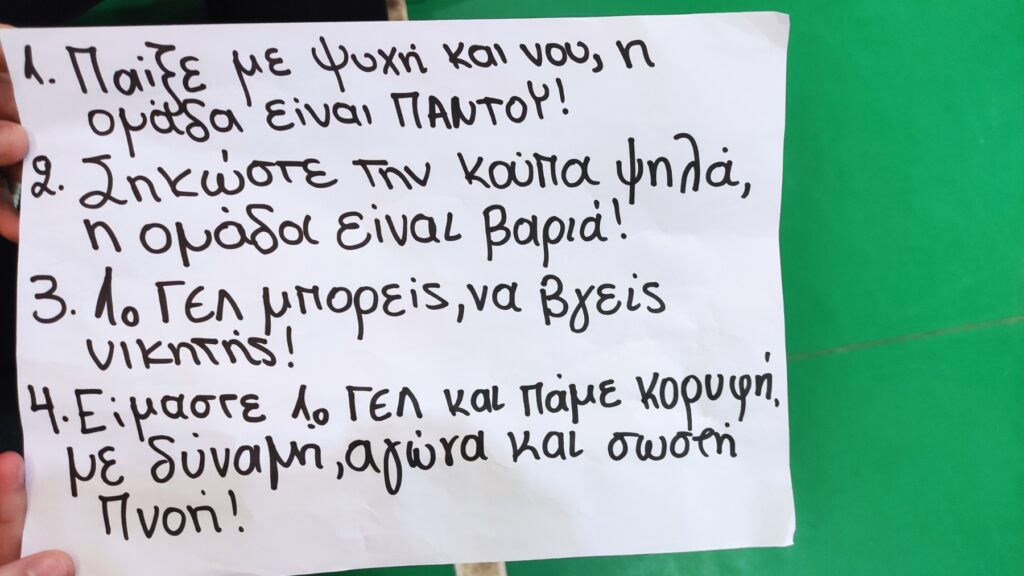 1. Παίξε με ψυχή και νου, η
ομάδα είναι ΠΑΝΤΟΥ!
2. Σηκώστε την κούπα ψηλά,
η ομάδα είναι βαριά!
3. 1ο ΓΕΛ μπορείς, να βγεις
νικητής!
4. Είμαστε 1ο ΓΕΛ και πάμε κορυφή,
με δύναμη, αγώνα και σωστή
πνοή!